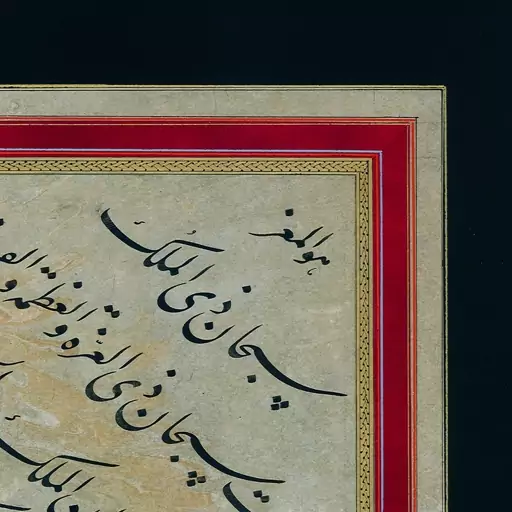 هو المعز
سبحان ذی الملک
سبحان ذی العزة و العظمة و
الملک